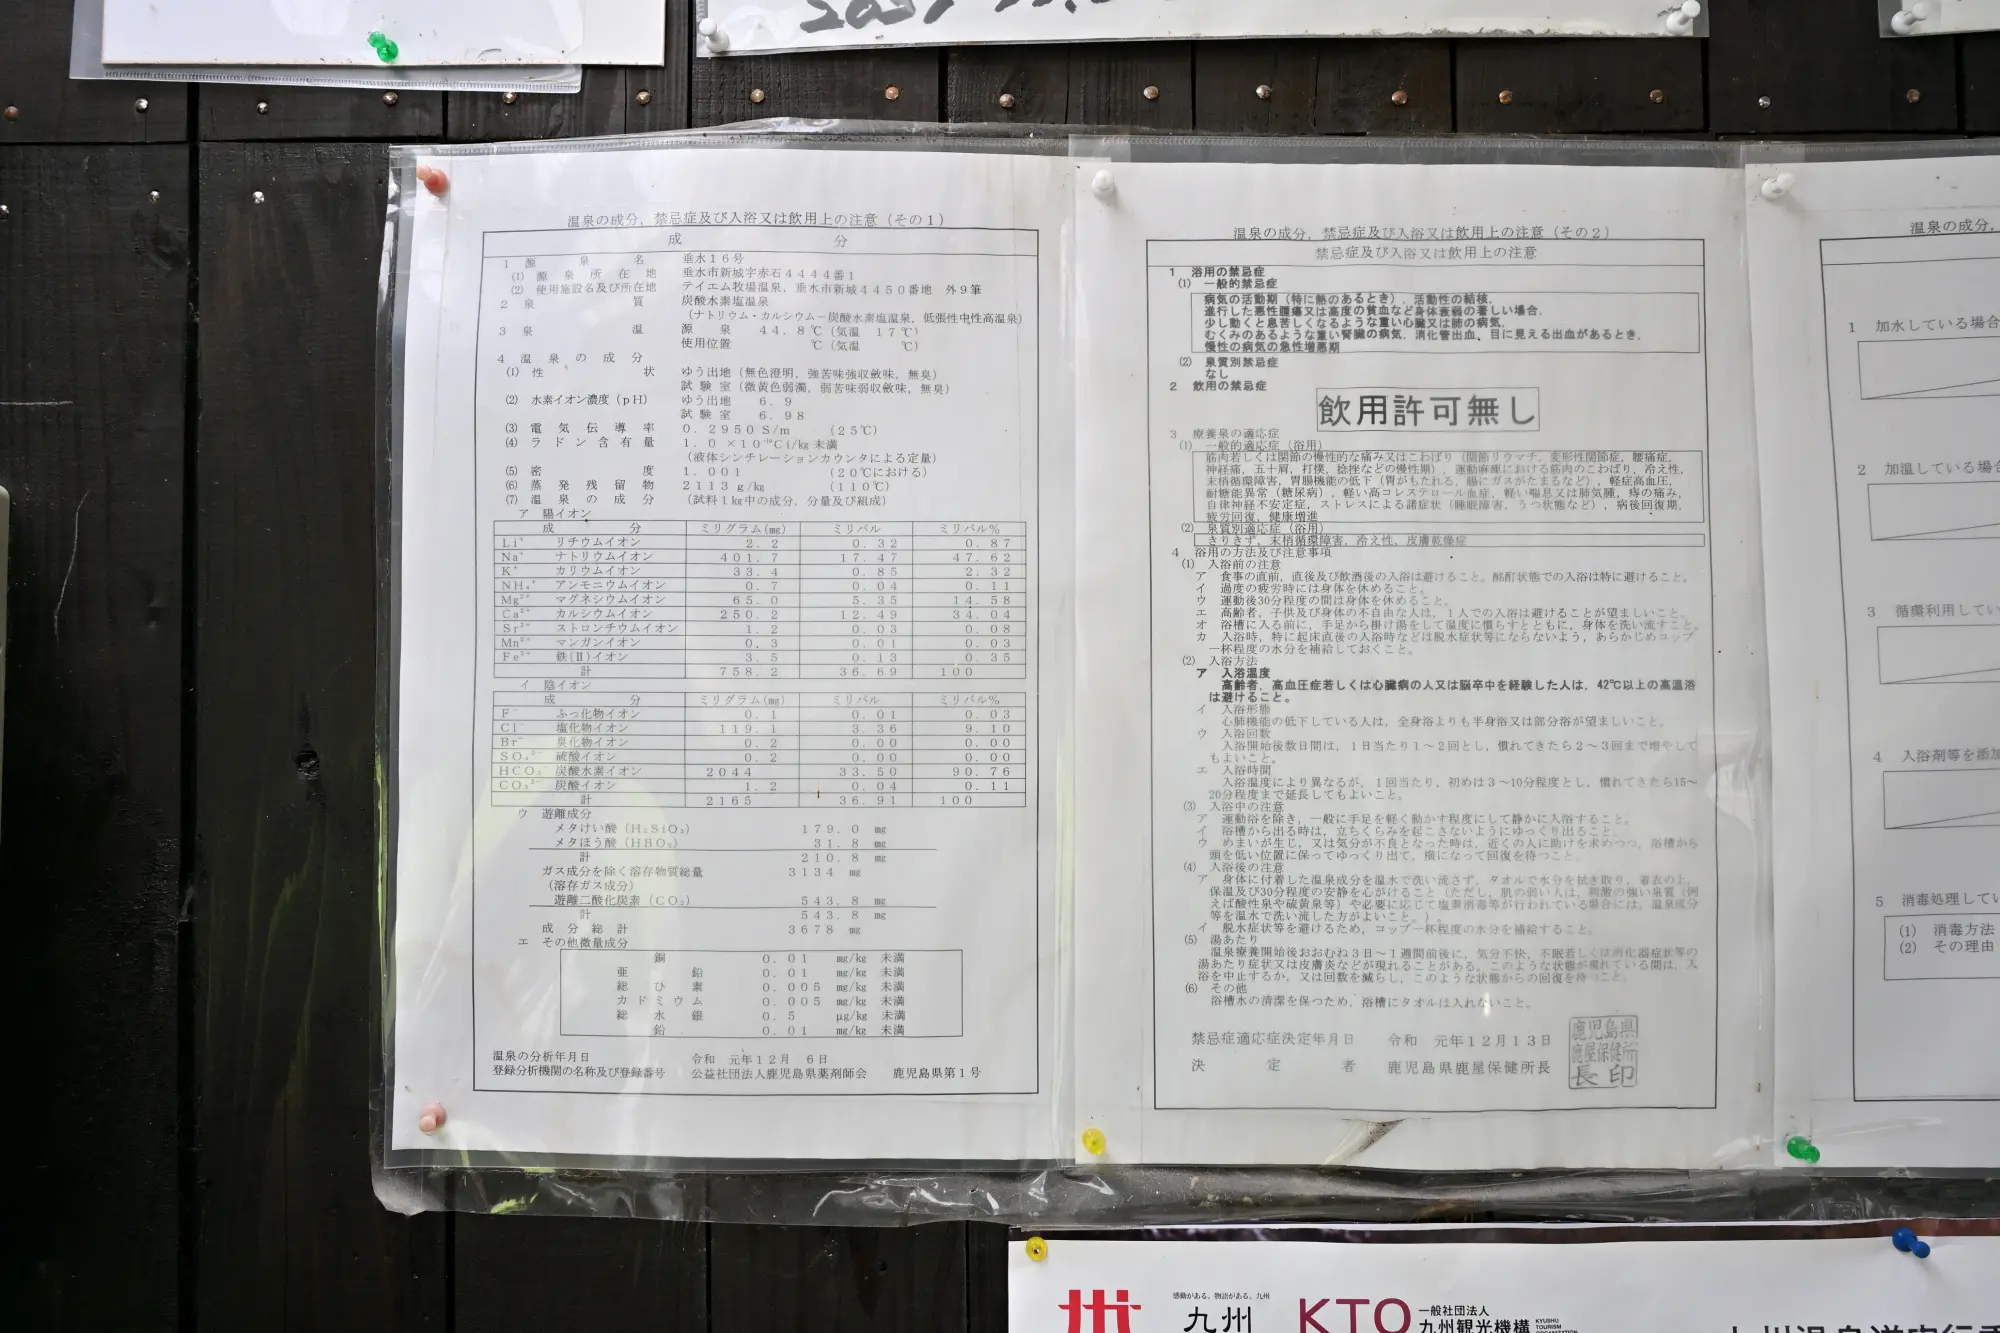 温泉の成分，禁忌症及び入浴又は飲用上の注意（その１）
成　分
１　源泉名　垂水１６号
(1)　源泉所在地　垂水市新城字赤石４４４４番１
(2)　使用施設名及び所在地　テイエム牧場温泉，垂水市新城４４５０番地　外９筆
２　泉質　炭酸水素塩温泉
（ナトリウム・カルシウム－炭酸水素塩温泉，低張性中性高温泉）
３　泉温　源泉　４４．８℃（気温　１７℃）
使用位置　℃（気温　℃）
４　温泉の成分
(1)　性状　ゆう出地（無色澄明，強苦味強収斂味，無臭）
試験室（微黄色弱濁，弱苦味弱収斂味，無臭）
(2)　水素イオン濃度（ｐＨ）　ゆう出地　６．９
試験室　６．９８
(3)　電気伝導率　０．２９５０ S/m　（２５℃）
(4)　ラドン含有量　１．０ ×１０⁻¹⁰Ci/kg 未満
（液体シンチレーションカウンタによる定量）
(5)　密度　１．００１　（２０℃における）
(6)　蒸発残留物　２１１３ g/kg　（１１０℃）
(7)　温泉の成分　（試料１kg中の成分，分量及び組成）
ア　陽イオン
成　分　ミリグラム(mg)　ミリバル　ミリバル％
Li⁺　リチウムイオン　２．２　０．３２　０．８７
Na⁺　ナトリウムイオン　４０１．７　１７．４７　４７．６２
K⁺　カリウムイオン　３３．４　０．８５　２．３２
NH₄⁺　アンモニウムイオン　０．７　０．０４　０．１１
Mg²⁺　マグネシウムイオン　６５．０　５．３５　１４．５８
Ca²⁺　カルシウムイオン　２５０．２　１２．４９　３４．０４
Sr²⁺　ストロンチウムイオン　１．２　０．０３　０．０８
Mn²⁺　マンガンイオン　０．３　０．０１　０．０３
Fe²⁺　鉄(Ⅱ)イオン　３．５　０．１３　０．３５
計　７５８．２　３６．６９　１００
イ　陰イオン
成　分　ミリグラム(mg)　ミリバル　ミリバル％
F⁻　ふっ化物イオン　０．１　０．０１　０．０３
Cl⁻　塩化物イオン　１１９．１　３．３６　９．１０
Br⁻　臭化物イオン　０．２　０．００　０．００
SO₄²⁻　硫酸イオン　０．２　０．００　０．００
HCO₃⁻　炭酸水素イオン　２０４４　３３．５０　９０．７６
CO₃²⁻　炭酸イオン　１．２　０．０４　０．１１
計　２１６５　３６．９１　１００
ウ　遊離成分
メタけい酸（H₂SiO₃）　１７９．０　mg
メタほう酸（HBO₂）　３１．８　mg
計　２１０．８　mg
ガス成分を除く溶存物質総量　３１３４　mg
（溶存ガス成分）
遊離二酸化炭素（CO₂）　５４３．８　mg
計　５４３．８　mg
成分総計　３６７８　mg
エ　その他微量成分
銅　０．０１　mg/kg　未満
亜鉛　０．０１　mg/kg　未満
総ひ素　０．００５　mg/kg　未満
カドミウム　０．００５　mg/kg　未満
総水銀　０．５　μg/kg　未満
鉛　０．０１　mg/kg　未満
温泉の分析年月日　令和　元年１２月　６日
登録分析機関の名称及び登録番号　公益社団法人鹿児島県薬剤師会　鹿児島県第１号
温泉の成分，禁忌症及び入浴又は飲用上の注意（その２）
禁忌症及び入浴又は飲用上の注意
１　浴用の禁忌症
(1)　一般的禁忌症
病気の活動期（特に熱のあるとき），活動性の結核，
進行した悪性腫瘍又は高度の貧血など身体衰弱の著しい場合，
少し動くと息苦しくなるような重い心臓又は肺の病気，
むくみのあるような重い腎臓の病気，消化管出血，目に見える出血があるとき，
慢性の病気の急性増悪期
(2)　泉質別禁忌症
なし
２　飲用の禁忌症
飲用許可無し
３　療養泉の適応症
(1)　一般的適応症（浴用）
筋肉若しくは関節の慢性的な痛み又はこわばり（関節リウマチ，変形性関節症，腰痛症，
神経痛，五十肩，打撲，捻挫などの慢性期），運動麻痺における筋肉のこわばり，冷え性，
末梢循環障害，胃腸機能の低下（胃がもたれる，腸にガスがたまるなど），軽症高血圧，
耐糖能異常（糖尿病），軽い高コレステロール血症，軽い喘息又は肺気腫，痔の痛み，
自律神経不安定症，ストレスによる諸症状（睡眠障害，うつ状態など），病後回復期，
疲労回復，健康増進
(2)　泉質別適応症（浴用）
きりきず，末梢循環障害，冷え性，皮膚乾燥症
４　浴用の方法及び注意事項
(1)　入浴前の注意
ア　食事の直前，直後及び飲酒後の入浴は避けること。酩酊状態での入浴は特に避けること。
イ　過度の疲労時には身体を休めること。
ウ　運動後30分程度の間は身体を休めること。
エ　高齢者，子供及び身体の不自由な人は，１人での入浴は避けることが望ましいこと。
オ　浴槽に入る前に，手足から掛け湯をして温度に慣らすとともに，身体を洗い流すこと。
カ　入浴時，特に起床直後の入浴時などは脱水症状等にならないよう，あらかじめコップ
一杯程度の水分を補給しておくこと。
(2)　入浴方法
ア　入浴温度
高齢者，高血圧症若しくは心臓病の人又は脳卒中を経験した人は，42℃以上の高温浴
は避けること。
イ　入浴形態
心肺機能の低下している人は，全身浴よりも半身浴又は部分浴が望ましいこと。
ウ　入浴回数
入浴開始後数日間は，１日当たり１～２回とし，慣れてきたら２～３回まで増やして
もよいこと。
エ　入浴時間
入浴温度により異なるが，１回当たり，初めは３～10分程度とし，慣れてきたら15～
20分程度まで延長してもよいこと。
(3)　入浴中の注意
ア　運動浴を除き，一般に手足を軽く動かす程度にして静かに入浴すること。
イ　浴槽から出る時は，立ちくらみを起こさないようにゆっくり出ること。
ウ　めまいが生じ，又は気分が不良となった時は，近くの人に助けを求めつつ，浴槽から
頭を低い位置に保ってゆっくり出て，横になって回復を待つこと。
(4)　入浴後の注意
ア　身体に付着した温泉成分を温水で洗い流さず，タオルで水分を拭き取り，着衣の上，
保温及び30分程度の安静を心がけること（ただし，肌の弱い人は，刺激の強い泉質（例
えば酸性泉や硫黄泉等）や必要に応じて塩素消毒等が行われている場合には，温泉成分
等を温水で洗い流した方がよいこと。）。
イ　脱水症状等を避けるため，コップ一杯程度の水分を補給すること。
(5)　湯あたり
温泉療養開始後おおむね３日～１週間前後に，気分不快，不眠若しくは消化器症状等の
湯あたり症状又は皮膚炎などが現れることがある。このような状態が現れている間は，入
浴を中止するか，又は回数を減らし，このような状態からの回復を待つこと。
(6)　その他
浴槽水の清潔を保つため，浴槽にタオルは入れないこと。
禁忌症適応症決定年月日　令和　元年１２月１３日
決定者　鹿児島県鹿屋保健所長
鹿児島県
鹿屋保健所
長印
温泉の成分，
１　加水している場合
２　加温している場合
３　循環利用してい
４　入浴剤等を添加
５　消毒処理してい
(1)　消毒方法
(2)　その理由
感動がある。物語がある。九州
九州
KTO
一般社団法人
九州観光機構
KYUSHU
TOURISM